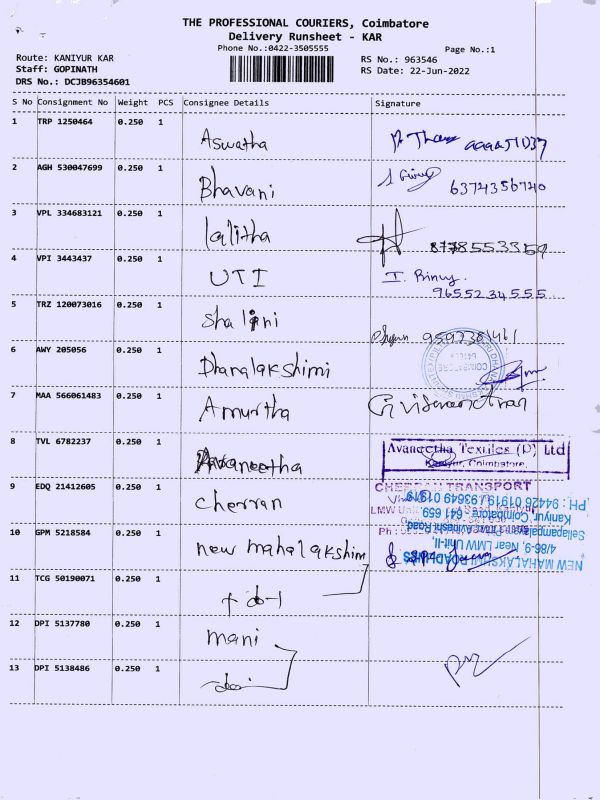 THE PROFESSIONAL COURIERS, Coimbatore
Delivery Runsheet - KAR
Phone No.:0422-3505555
Page No.:1
Route: KANIYUR KAR
RS No.: 963546
Staff: GOPINATH
RS Date: 22-Jun-2022
DRS No.: DCJB96354601
S No Consignment No Weight PCS Consignee Details Signature
1 TRP 1250464 0.250 1
Aswatha
2 AGH 530047699 0.250 1
Bhavani 6374356740
3 VPL 334683121 0.250 1
lalitha 8778553359
4 VPI 3443437 0.250 1
UTI I. Rinu
9655234555
5 TRZ 120073016 0.250 1
Shalini
6 AWY 205056 0.250 1
Dhanalakshimi
7 MAA 566061483 0.250 1
Amurtha
8 TVL 6782237 0.250 1
Avaneetha
Avaneetha Textiles (P) Ltd
Kaniyur, Coimbatore.
9 EDQ 21412605 0.250 1
Cherran
TRANSPORT
10 GPM 5218584 0.250 1
new mahalakshim
NEW MAHALAKSHMI ROADLINES
4/86-9, Near LMW Unit-II
Kaniyur, Coimbatore - 641 659.
PH : 94426 01919 / 93649 01919
11 TCG 50190071 0.250 1
12 DPI 5137780 0.250 1
mani
13 DPI 5138486 0.250 1